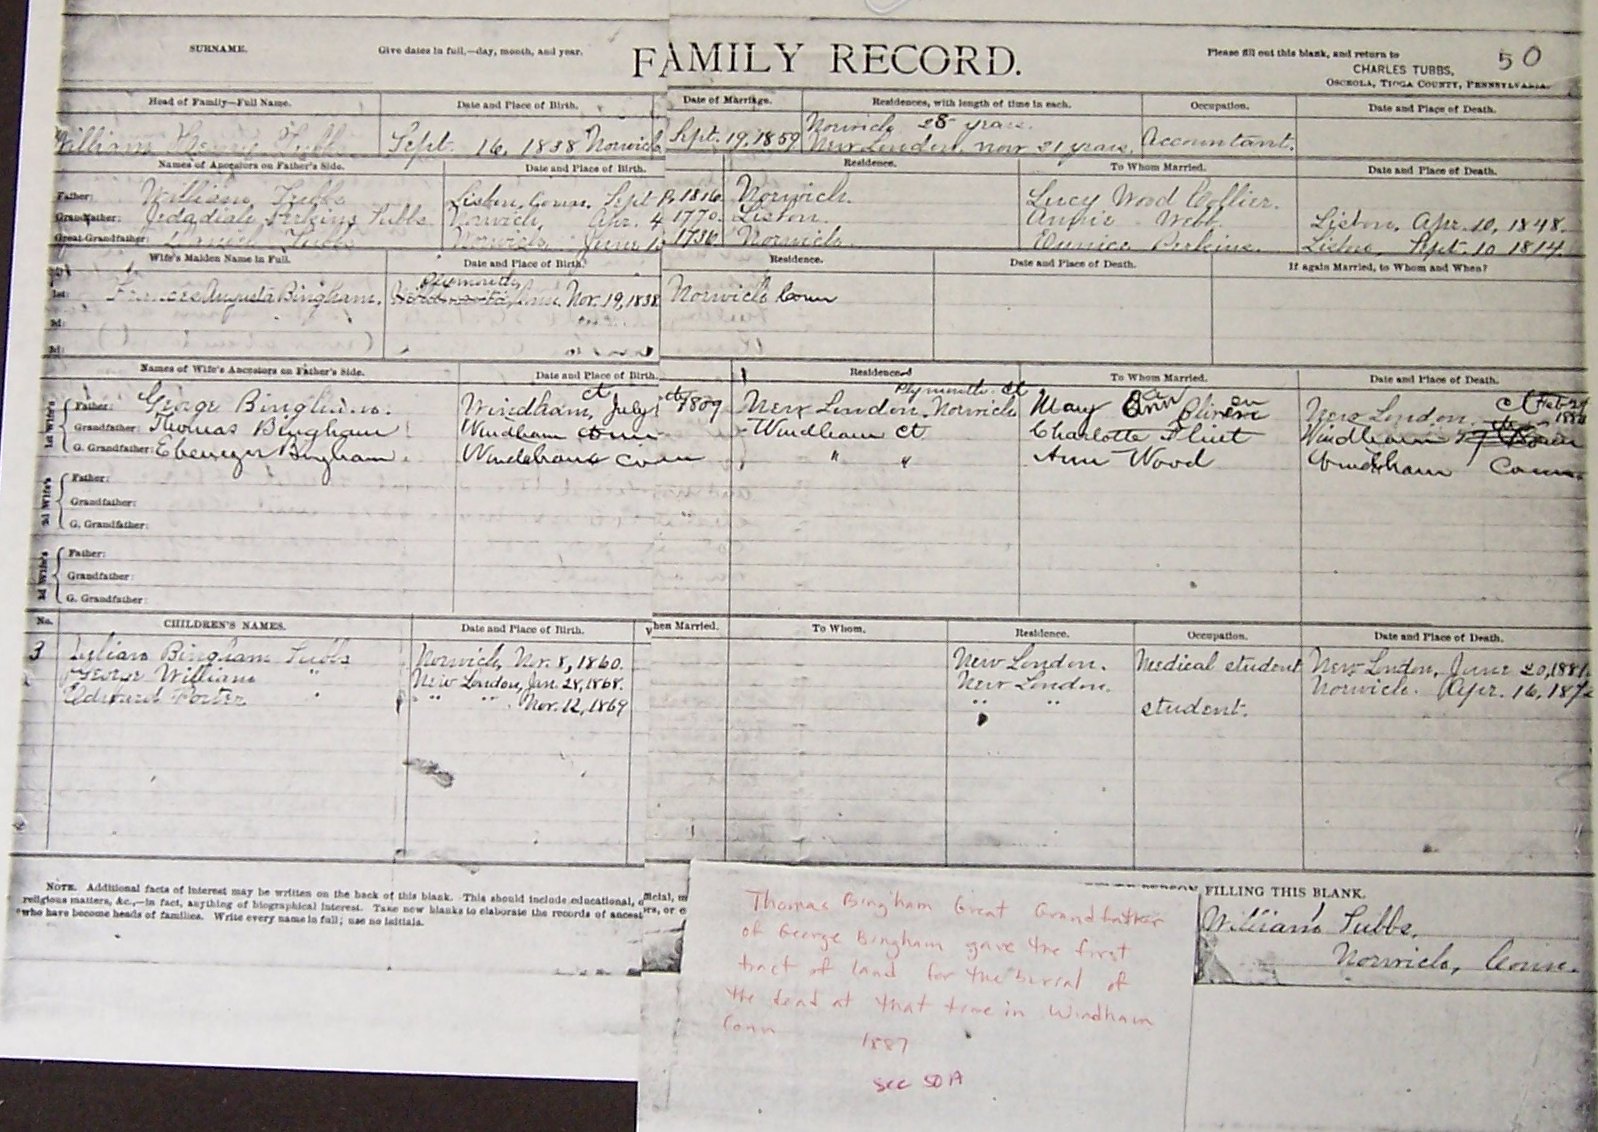 SURNAME. Give dates in full,—day, month, and year. FAMILY RECORD. Please fill out this blank, and return to 50
CHARLES TUBBS,
OSCEOLA, TIOGA COUNTY, PENNSYLVANIA.
Head of Family—Full Name. Date and Place of Birth. Date of Marriage. Residences, with length of time in each. Occupation. Date and Place of Death.
Norwich 28 years.
William Tubbs Sept. 16, 1838 Norwich Sept. 19, 1859 New London, now 21 years, Accountant.
Names of Ancestors on Father's Side. Date and Place of Birth. Residence. To Whom Married. Date and Place of Death.
Father: William Tubbs Lisbon, Conn. Sept 1816. Norwich. Lucy Word Collier.
Grandfather: Jedadiah Perkins Tubbs Norwich, Apr. 4 1770. Lisbon. Annie Webb. Lisbon, Apr. 10, 1848.
Great-Grandfather: Tubbs Norwich, June 1736. Norwich. Eunice Perkins. Lisbon, Sept. 10 1814.
Wife's Maiden Name in Full. Date and Place of Birth. Residence. Date and Place of Death. If again Married, to Whom and When?
Plymouth
1st: Frances Augusta Bingham. Nov. 19, 1838 Norwich Conn
2d:
3d:
Names of Wife's Ancestors on Father's Side. Date and Place of Birth. Residence. To Whom Married. Date and Place of Death.
1st Wife's Father: George Bingham. Windham, ct July 1809 New London, Norwich Plymouth. Ct Mary Ann New London. ct Feb
Grandfather: Thomas Bingham Windham Conn Windham Ct Charlotte Flint Windham Conn
G. Grandfather: Ebenezer Bingham Windham Conn " " Ann Wood Windham Conn.
2d Wife's Father:
Grandfather:
G. Grandfather:
3d Wife's Father:
Grandfather:
G. Grandfather:
No. CHILDREN'S NAMES. Date and Place of Birth. When Married. To Whom. Residence. Occupation. Date and Place of Death.
3 Julian Bingham Tubbs Norwich, Nov. 8, 1860. New London. Medical student New London, June 20, 1881
George William " New London, Jan. 28, 1868. New London. Norwich. Apr. 16, 187
Edward Porter " " " Nov. 12, 1869 " " student.
NOTE. Additional facts of interest may be written on the back of this blank. This should include educational, official,
religious matters, &c.,—in fact, anything of biographical interest. Take new blanks to elaborate the records of ancestors, or
who have become heads of families. Write every name in full; use no initials.
FILLING THIS BLANK.
William Tubbs.
Norwich, Conn.
Thomas Bingham Great Grandfather
of George Bingham gave the first
tract of land for the burial of
the dead at that time in Windham
Conn
1887
see 50A